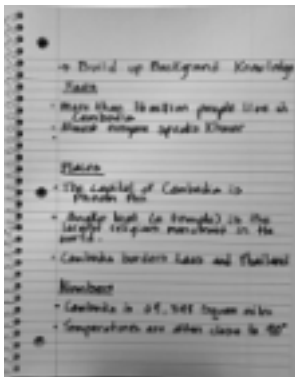 → Build up Background Knowledge
Facts
• More than 16 million people live in
Cambodia
• Almost everyone speaks Khmer
•
Places
• The capital of Cambodia is
Phnom Penh
• Angkor Wat (a temple) is the
largest religious monument in the
world.
• Cambodia borders Laos and Thailand
Numbers
• Cambodia is square miles
• Temperatures are often close to 90°